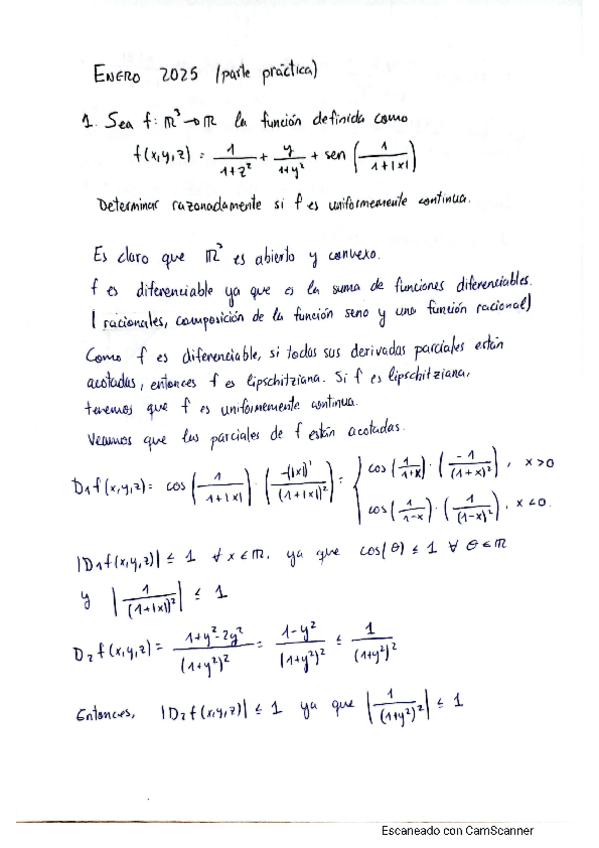 ENERO 2025 (parte práctica)
1. Sea f: ℝ³→ℝ la función definida como
f(x,y,z) = 1/(1+z²) + y/(1+y²) + sen (1/(1+|x|))
Determinar razonadamente si f es uniformemente continua.
Es claro que ℝ³ es abierto y convexo.
f es diferenciable ya que es la suma de funciones diferenciables.
(racionales, composición de la función seno y una función racional)
Como f es diferenciable, si todas sus derivadas parciales están
acotadas, entonces f es lipschitziana. Si f es lipschitziana,
tenemos que f es uniformemente continua.
Veamos que las parciales de f están acotadas.
D₁f(x,y,z) = cos (1/(1+|x|)) · (-(|x|)'/(1+|x|)²) = { cos (1/(1+x)) · (-1/(1+x)²), x>0
cos (1/(1-x)) · (1/(1-x)²), x<0.
|D₁f(x,y,z)| ≤ 1 ∀ x ∈ ℝ, ya que cos(θ) ≤ 1 ∀ θ ∈ ℝ
y |1/(1+|x|)²| ≤ 1
D₂f(x,y,z) = (1+y²-2y²)/(1+y²)² = (1-y²)/(1+y²)² ≤ 1/(1+y²)²
Entonces, |D₂f(x,y,z)| ≤ 1 ya que |1/(1+y²)²| ≤ 1
Escaneado con CamScanner